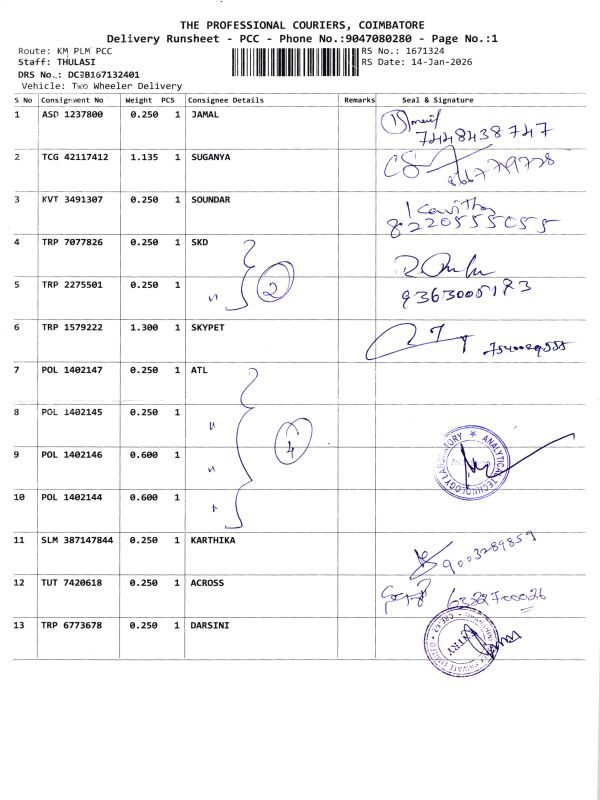 THE PROFESSIONAL COURIERS, COIMBATORE
Delivery Runsheet - PCC - Phone No.:9047080280 - Page No.:1
Route: KM PLM PCC RS No.: 1671324
Staff: THULASI RS Date: 14-Jan-2026
DRS No.: DCJB167132401
Vehicle: Two Wheeler Delivery
S No Consignment No Weight PCS Consignee Details Remarks Seal & Signature
1 ASD 1237800 0.250 1 JAMAL
7448438747
2 TCG 42117412 1.135 1 SUGANYA
3 KVT 3491307 0.250 1 SOUNDAR Kavitha
8220555055
4 TRP 7077826 0.250 1 SKD
2
5 TRP 2275501 0.250 1 " 9363005193
6 TRP 1579222 1.300 1 SKYPET
7 POL 1402147 0.250 1 ATL
8 POL 1402145 0.250 1 "
4
9 POL 1402146 0.600 1 "
10 POL 1402144 0.600 1 "
ANALYTICAL TECHNOLOGY LABORATORY
11 SLM 387147844 0.250 1 KARTHIKA
9003289859
12 TUT 7420618 0.250 1 ACROSS
13 TRP 6773678 0.250 1 DARSINI
ENTRY